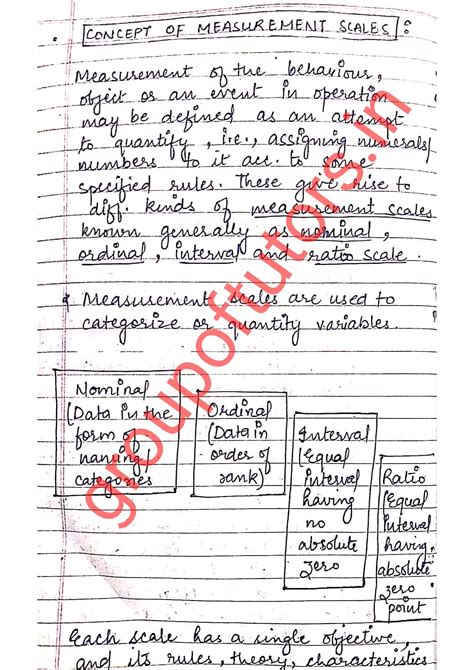 CONCEPT OF MEASUREMENT SCALES :
Measurement of the behaviour,
object or an event in operation
may be defined as an attempt
to quantify, i.e., assigning numerals/
numbers to it acc. to some
specified rules. These give rise to
diff. kinds of measurement scales
known generally as nominal,
ordinal, interval and ratio scale.
Measurement scales are used to
categorize or quantity variables.
Nominal
(Data in the
form of
naming/
categories
Ordinal
(Data in
order of
rank)
Interval
(Equal
interval
having
no
absolute
zero
Ratio
(Equal
interval
having
absolute
zero
point
Each scale has a single objective,
and its rules, theory, characteristics
groupoftutors.in